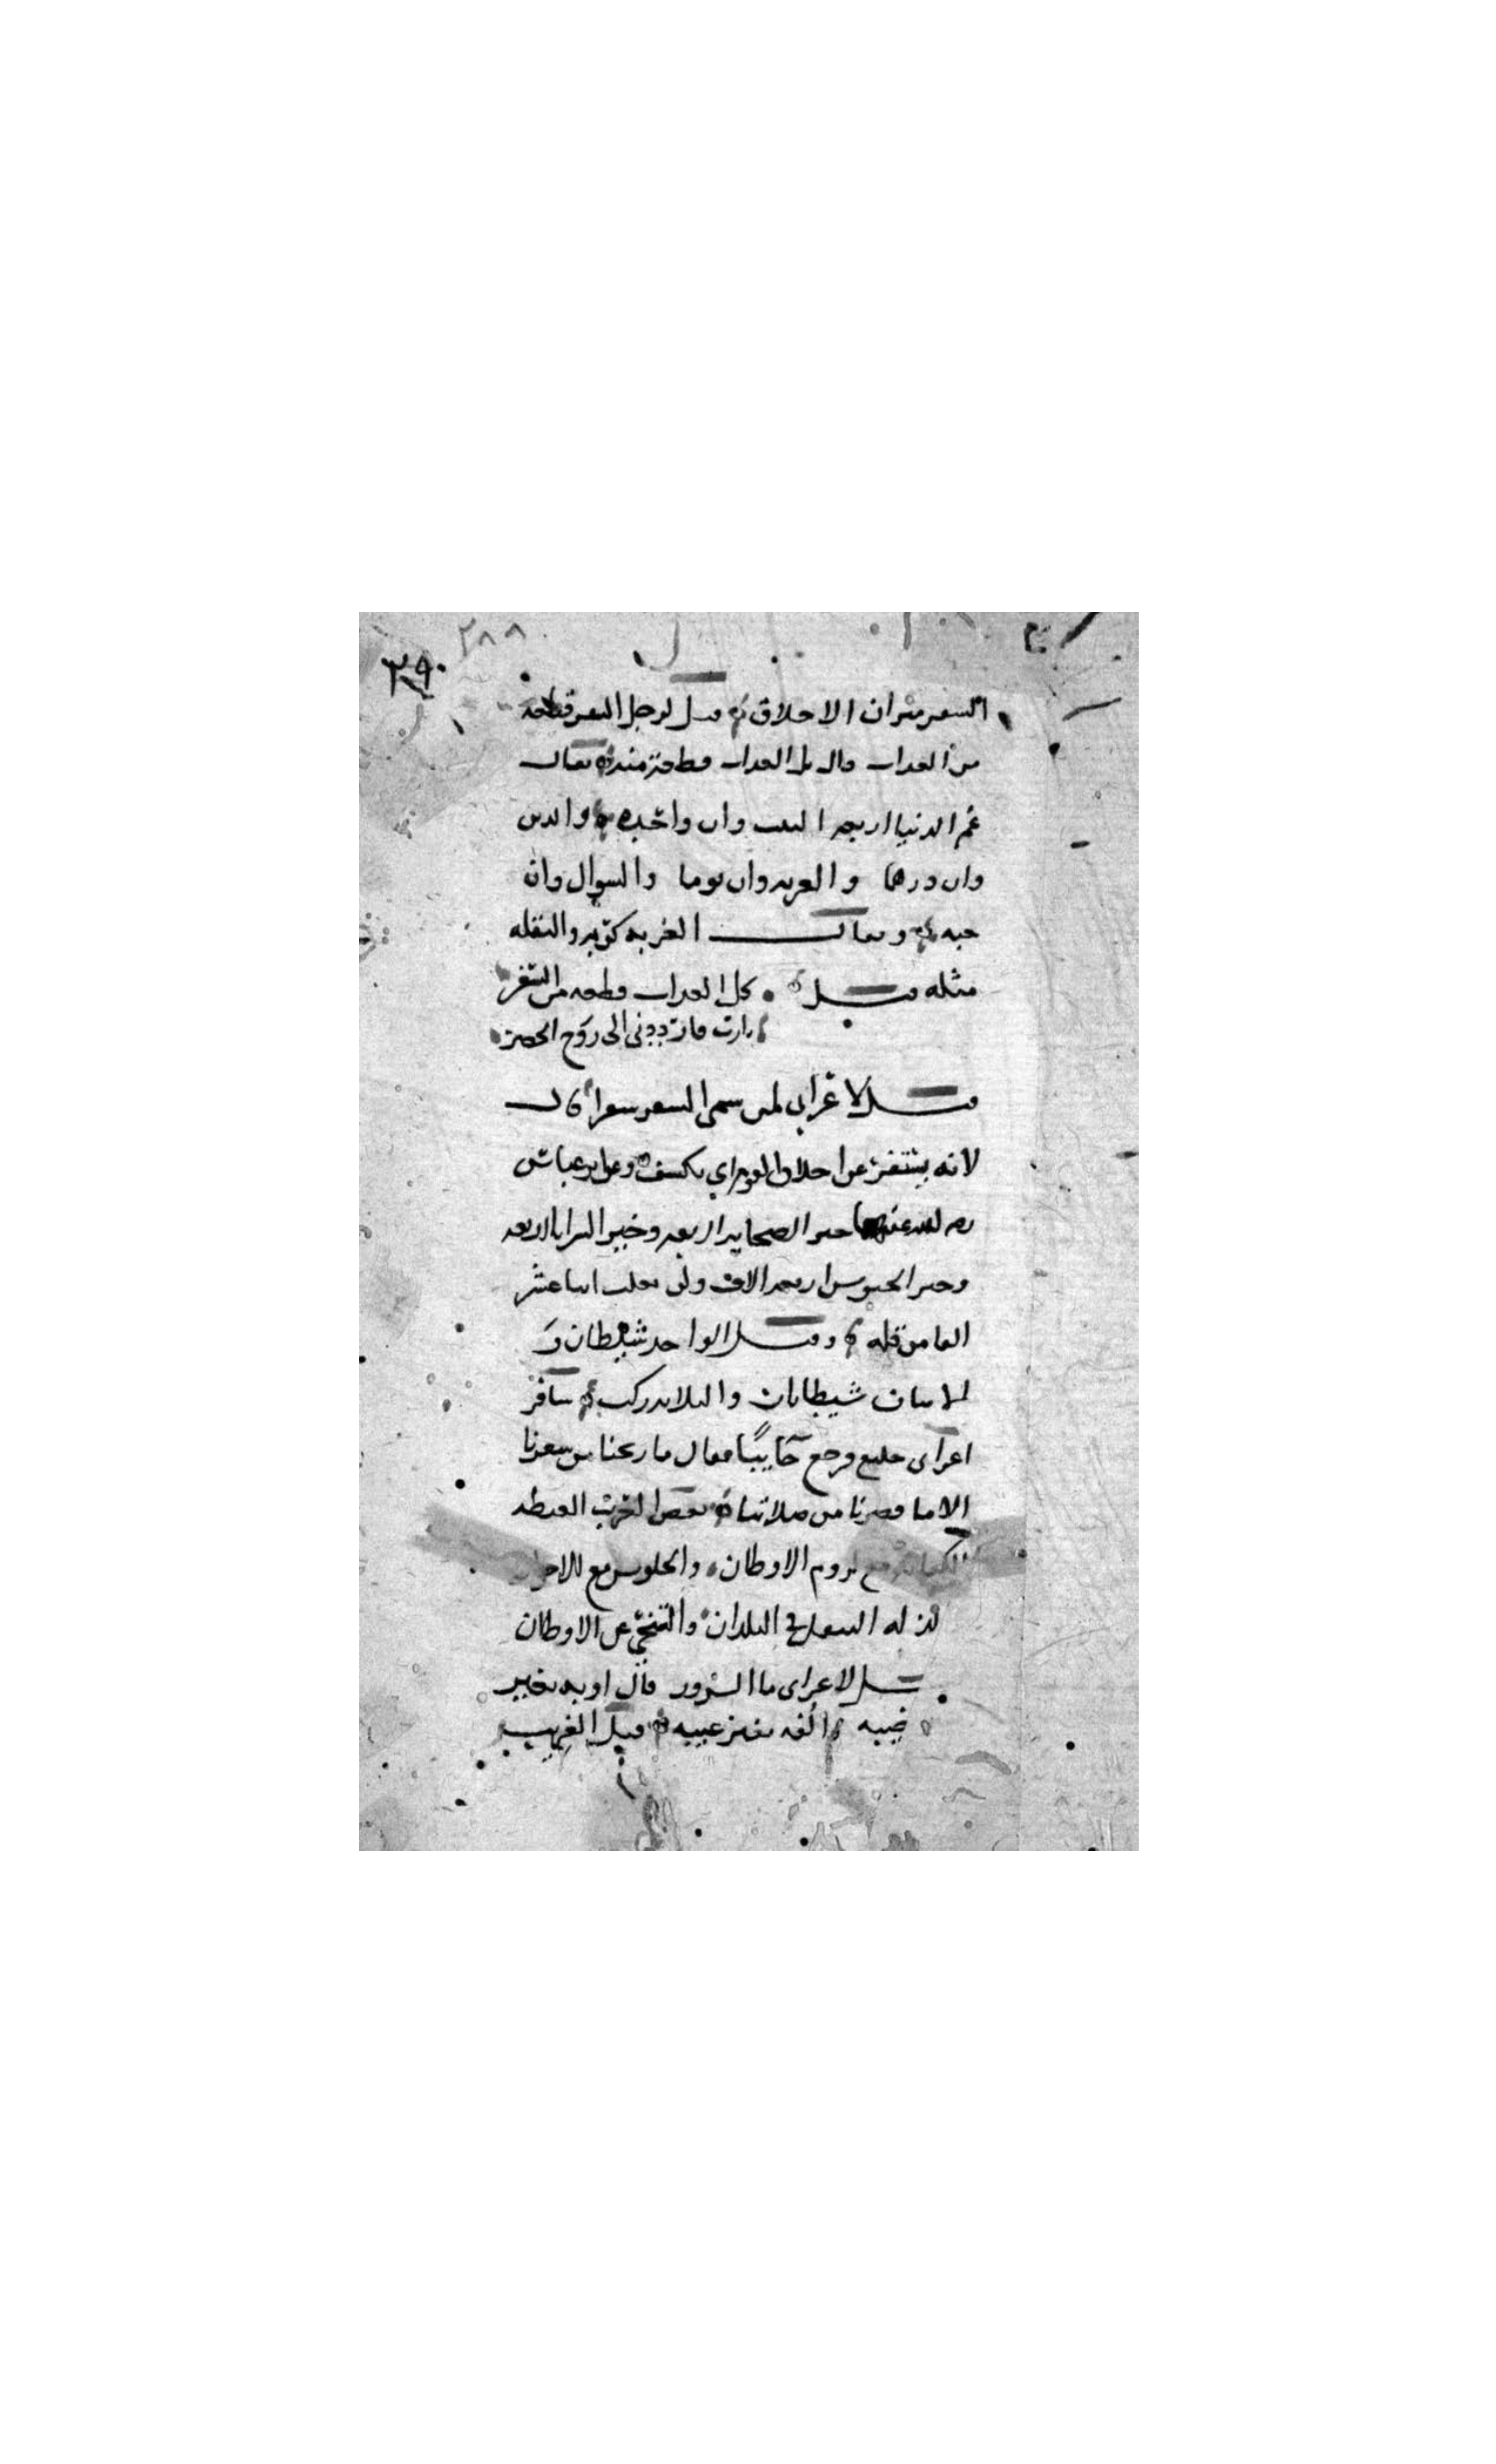 ٢٨٨
٢٩٠
السفر ميزان الاخلاق قيل لرجل السفر قطعه
من العداب قال بل العداب قطعة منه يقال
غم الدنيا اربعه البنت وان واحده والدين
وان درهما والغربه وان يوما والسوال وان
حبه ويقال الغربه كربه والنقله
مثله قيل كل العداب قطعه من السفر
يارب فارددني الى روح الحضر
قيل لاعرابي لم سمى السفر سفرا قال
لانه يسفر عن اخلاق القوم اي يكشف وعن ابن عباس
رضى الله عنهما خير الصحابه اربعه وخير السرايا اربعه
وخير الجيوش اربعه الاف ولن يغلب اثنا عشر
الفا من قله وقيل الواحد شيطان و
الاثنان شيطانان والثلاثه ركب سافر
اعرابي فرجع خايبًا فقال ما ربحنا من سفرنا
الا ما قصرنا من صلاتنا بعض العرب الغبطه
الكفايه مع لزوم الاوطان والجلوس مع الاخوان
الذله التنقل في البلدان والتنحي عن الاوطان
قيل لاعرابي ما السرور قال اوبه بغير
خيبه والفه بعد غيبه قيل الغريب